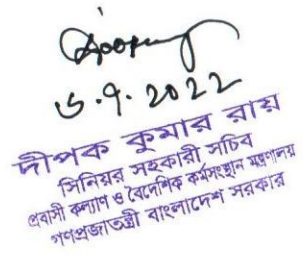 ৬.৭.2022
দীপক কুমার রায়
সিনিয়র সহকারী সচিব
প্রবাসী কল্যাণ ও বৈদেশিক কর্মসংস্থান মন্ত্রণালয়
গণপ্রজাতন্ত্রী বাংলাদেশ সরকার